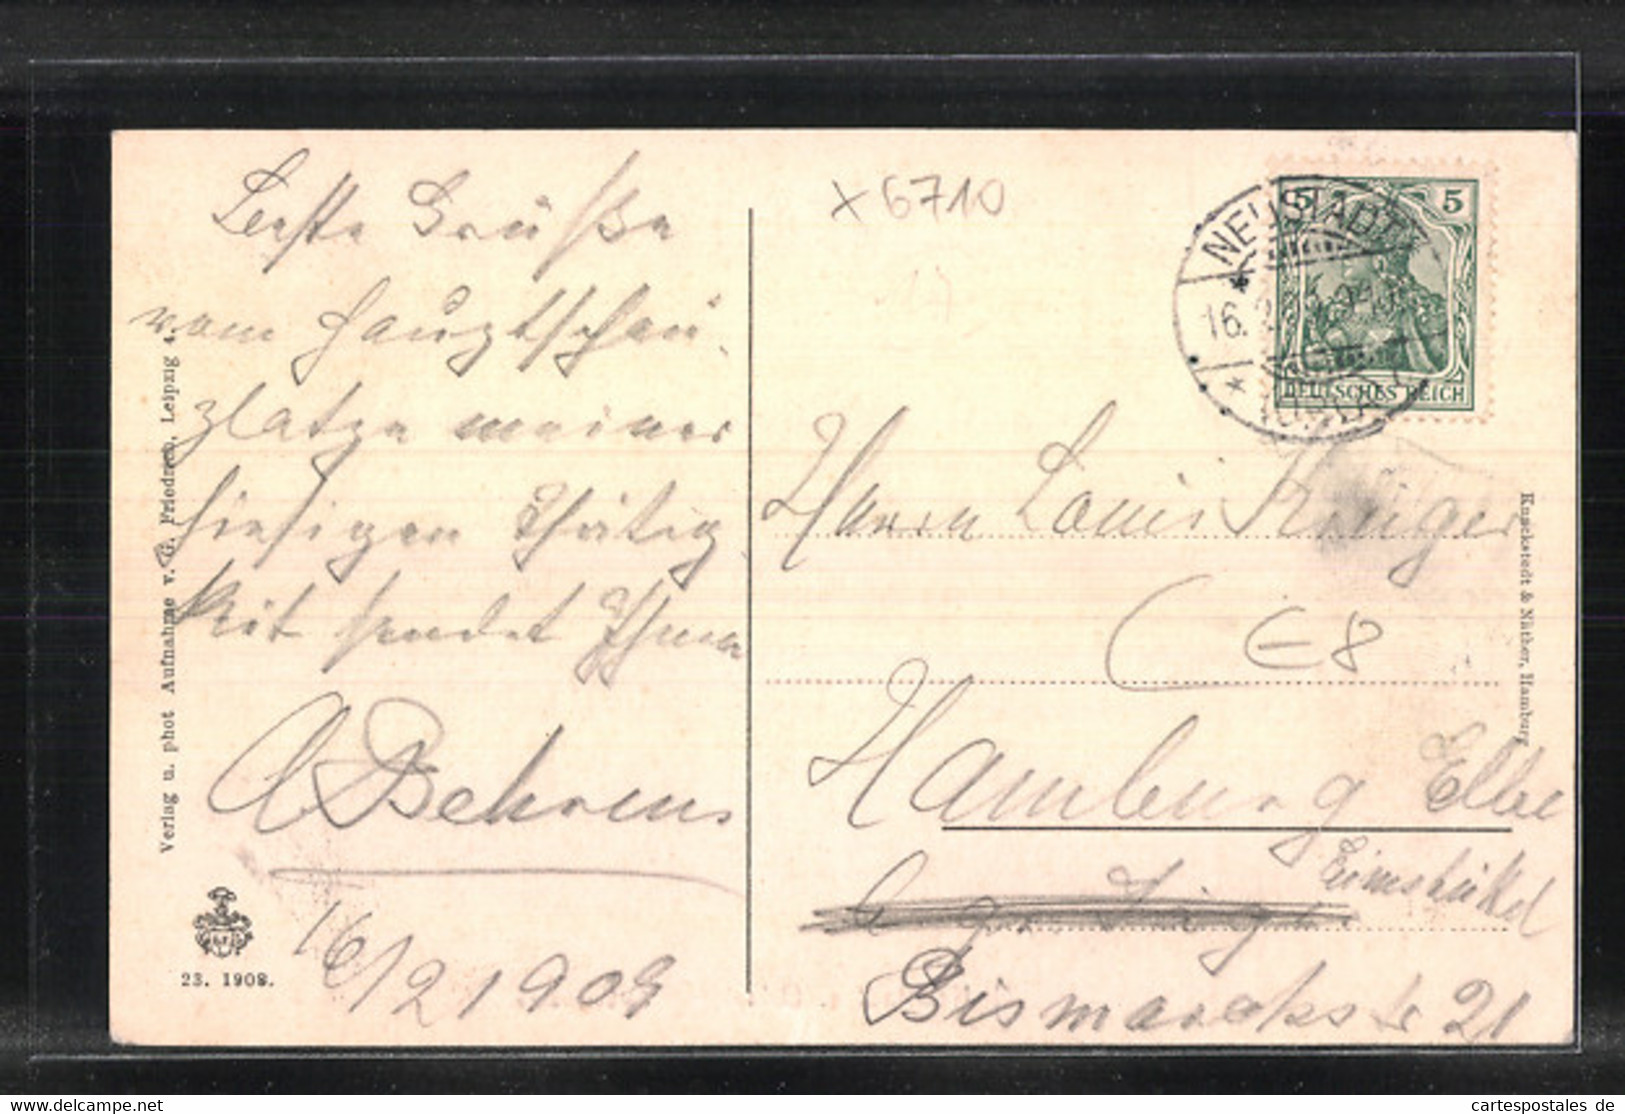 Beste Grüße
vom Hauptschau-
platze meiner
hiesigen Thätig-
keit sendet Ihnen
A Behrens
16/2 1909
Verlag u. phot Aufnahme v. G. Friedrich, Leipzig 4.
23. 1908.
x 6710
17
NEUSTADT
16. 2.
5 5
DEUTSCHES REICH
Herrn Louis Krüger
E8
Hamburg Elbe
Eimsbüttel
Bismarckstr 21
Knackstedt & Näther, Hamburg
cartespostales de